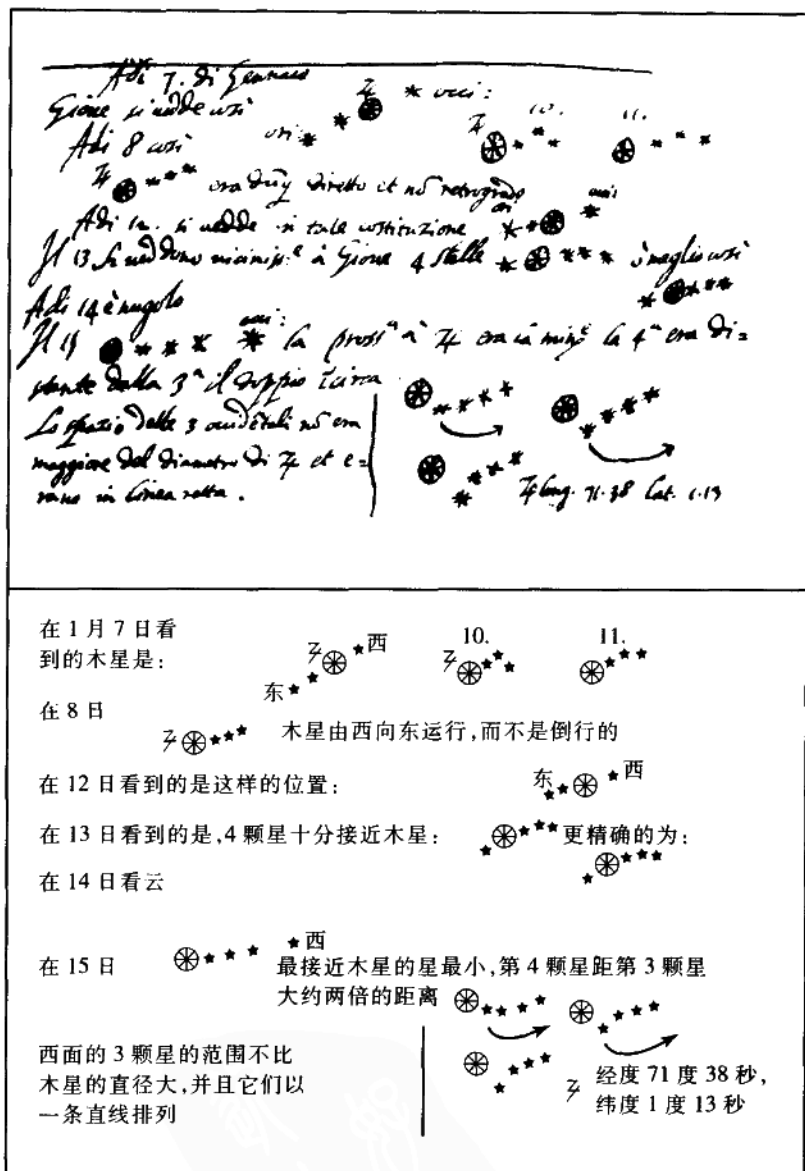 Adi 7. di Gennaio
Gione si vedde così occi:
ori: 10. 11.
Adi 8 così
era dirετto et nõ retrogrado
Adi 12. si vedde in tale costituzione
Il 13 si veddono vicinissᵉ à Gione 4 stelle ò meglio così
Adi 14 è nugolo
Il 15 occi: la prossᵃ à ♃ era la minᵉ la 4ᵃ era di=
stante dalla 3ᵃ il doppio circa
Lo spazio delle 3 occidẽtali nõ era
maggiore del diametro di ♃ et e=
rano in linea retta.
♃ long. 71.38 lat. 1.13
在 1 月 7 日看
到的木星是:
♃ 西 ♃ 10. 11.
东
在 8 日
♃ 木星由西向东运行,而不是倒行的
在 12 日看到的是这样的位置: 东 西
在 13 日看到的是,4 颗星十分接近木星: 更精确的为:
在 14 日看云
在 15 日 西
最接近木星的星最小,第 4 颗星距第 3 颗星
大约两倍的距离
西面的 3 颗星的范围不比
木星的直径大,并且它们以
一条直线排列
♃ 经度 71 度 38 秒,
纬度 1 度 13 秒